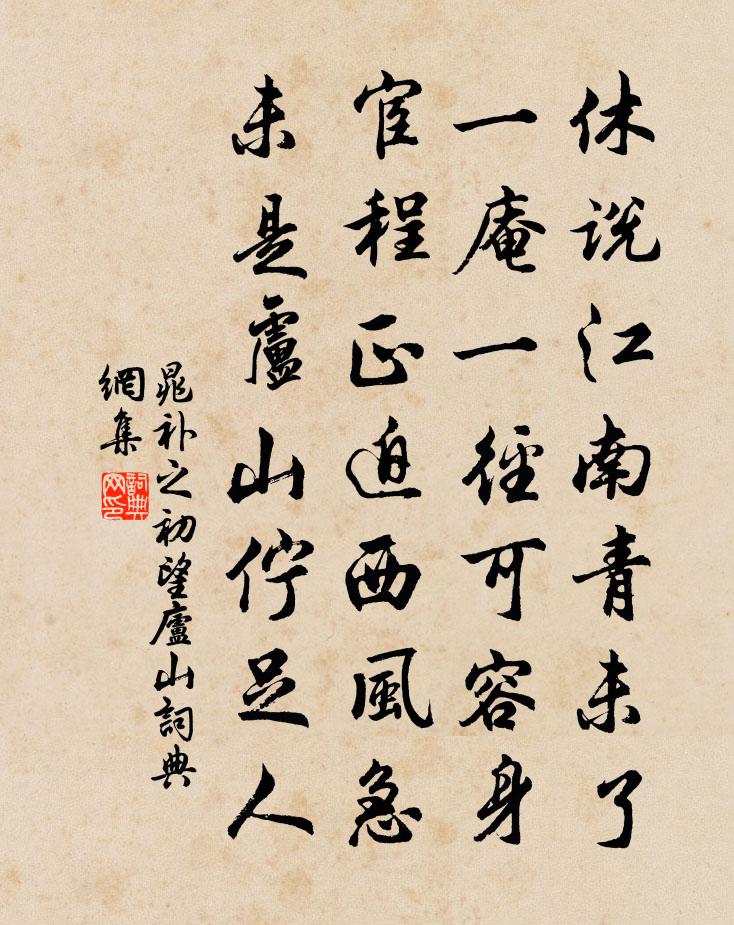 休说江南青未了
一庵一径可容身
宦程正迫西風急
未是廬山佇足人
晁补之初望廬山詞典
網集
詞典
网印